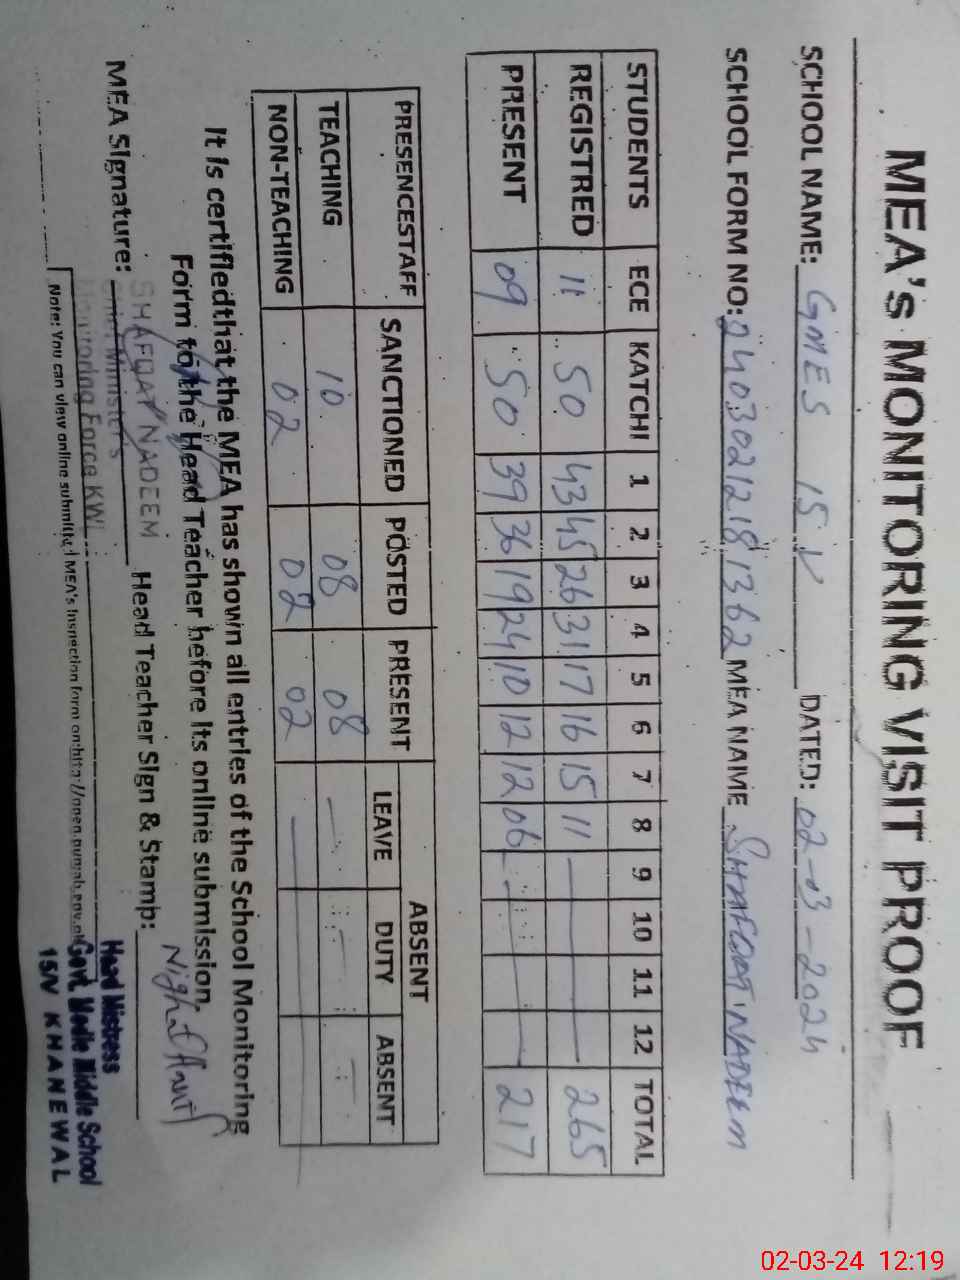 MEA's MONITORING VISIT PROOF
SCHOOL NAME: GMES 15 V DATED: 02-03-2024
SCHOOL FORM NO: 024030212181362 MEA NAME SHAFQAT NADEEM
STUDENTS ECE KATCHI 1 2 3 4 5 6 7 8 9 10 11 12 TOTAL
REGISTRED 11 50 43 45 26 31 17 16 15 11 — 265
PRESENT 09 50 39 36 19 24 10 12 12 06 — 217
ABSENT
PRESENCESTAFF SANCTIONED POSTED PRESENT LEAVE DUTY ABSENT
TEACHING 10 08 08 — — —
NON-TEACHING 02 02 02 —
It is certifiedthat the MEA has shown all entries of the School Monitoring
Form to the Head Teacher before its online submission.
MEA Signature: Head Teacher Sign & Stamp:
SHAFQAT NADEEM
Chief Minister's
Monitoring Force KWL
Head Mistress
Govt. Middle School
15/V KHANEWAL
Note: You can view online submitted MEA's Inspection form on:http://open.punjab.gov.pk
02-03-24 12:19